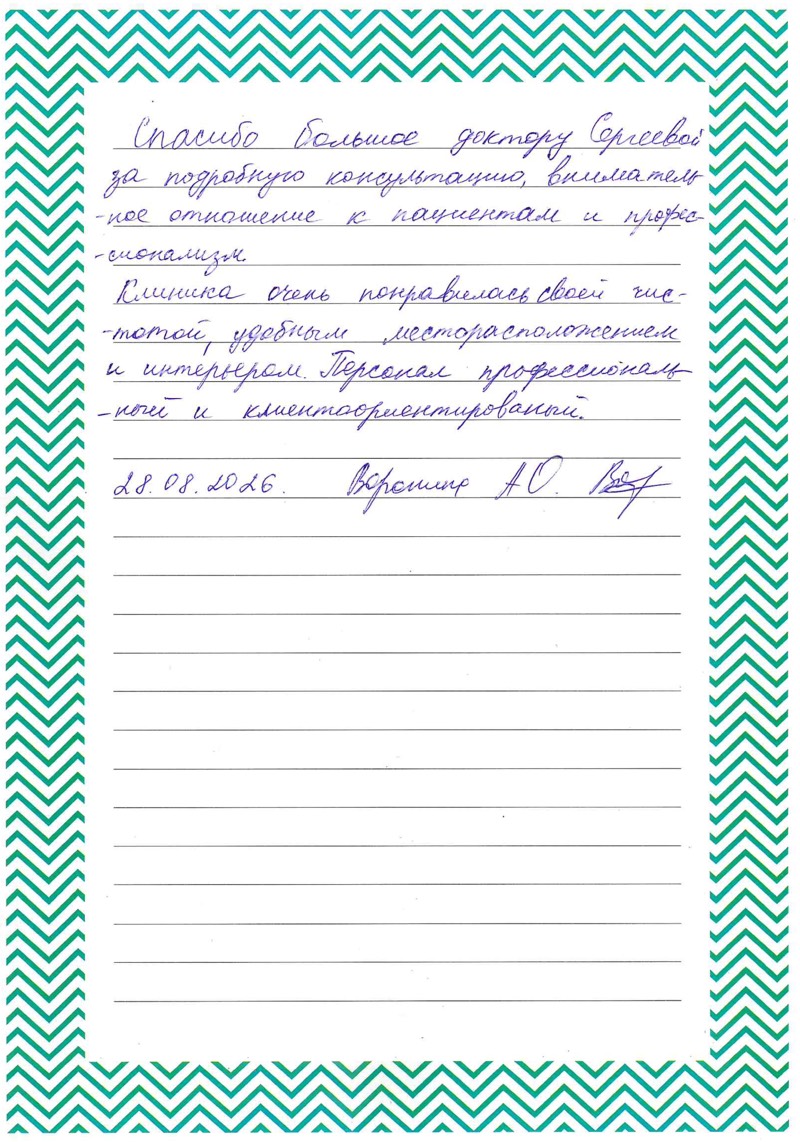 Спасибо большое доктору Сергеевой
за подробную консультацию, вниматель-
-ное отношение к пациентам и профес-
-сионализм.
Клиника очень понравилась своей чис-
-тотой, удобным месторасположением
и интерьером. Персонал профессиональ-
-ный и клиентоориентированый.
28.08.2026. Воронина А О.